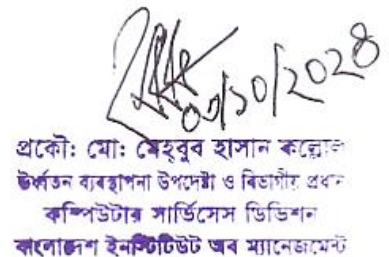 ০৩/১০/২০২৪
প্রকৌ: মো: মেহবুব হাসান কল্লোল
ঊর্ধ্বতন ব্যবস্থাপনা উপদেষ্টা ও বিভাগীয় প্রধান
কম্পিউটার সার্ভিসেস ডিভিশন
বাংলাদেশ ইনস্টিটিউট অব ম্যানেজমেন্ট